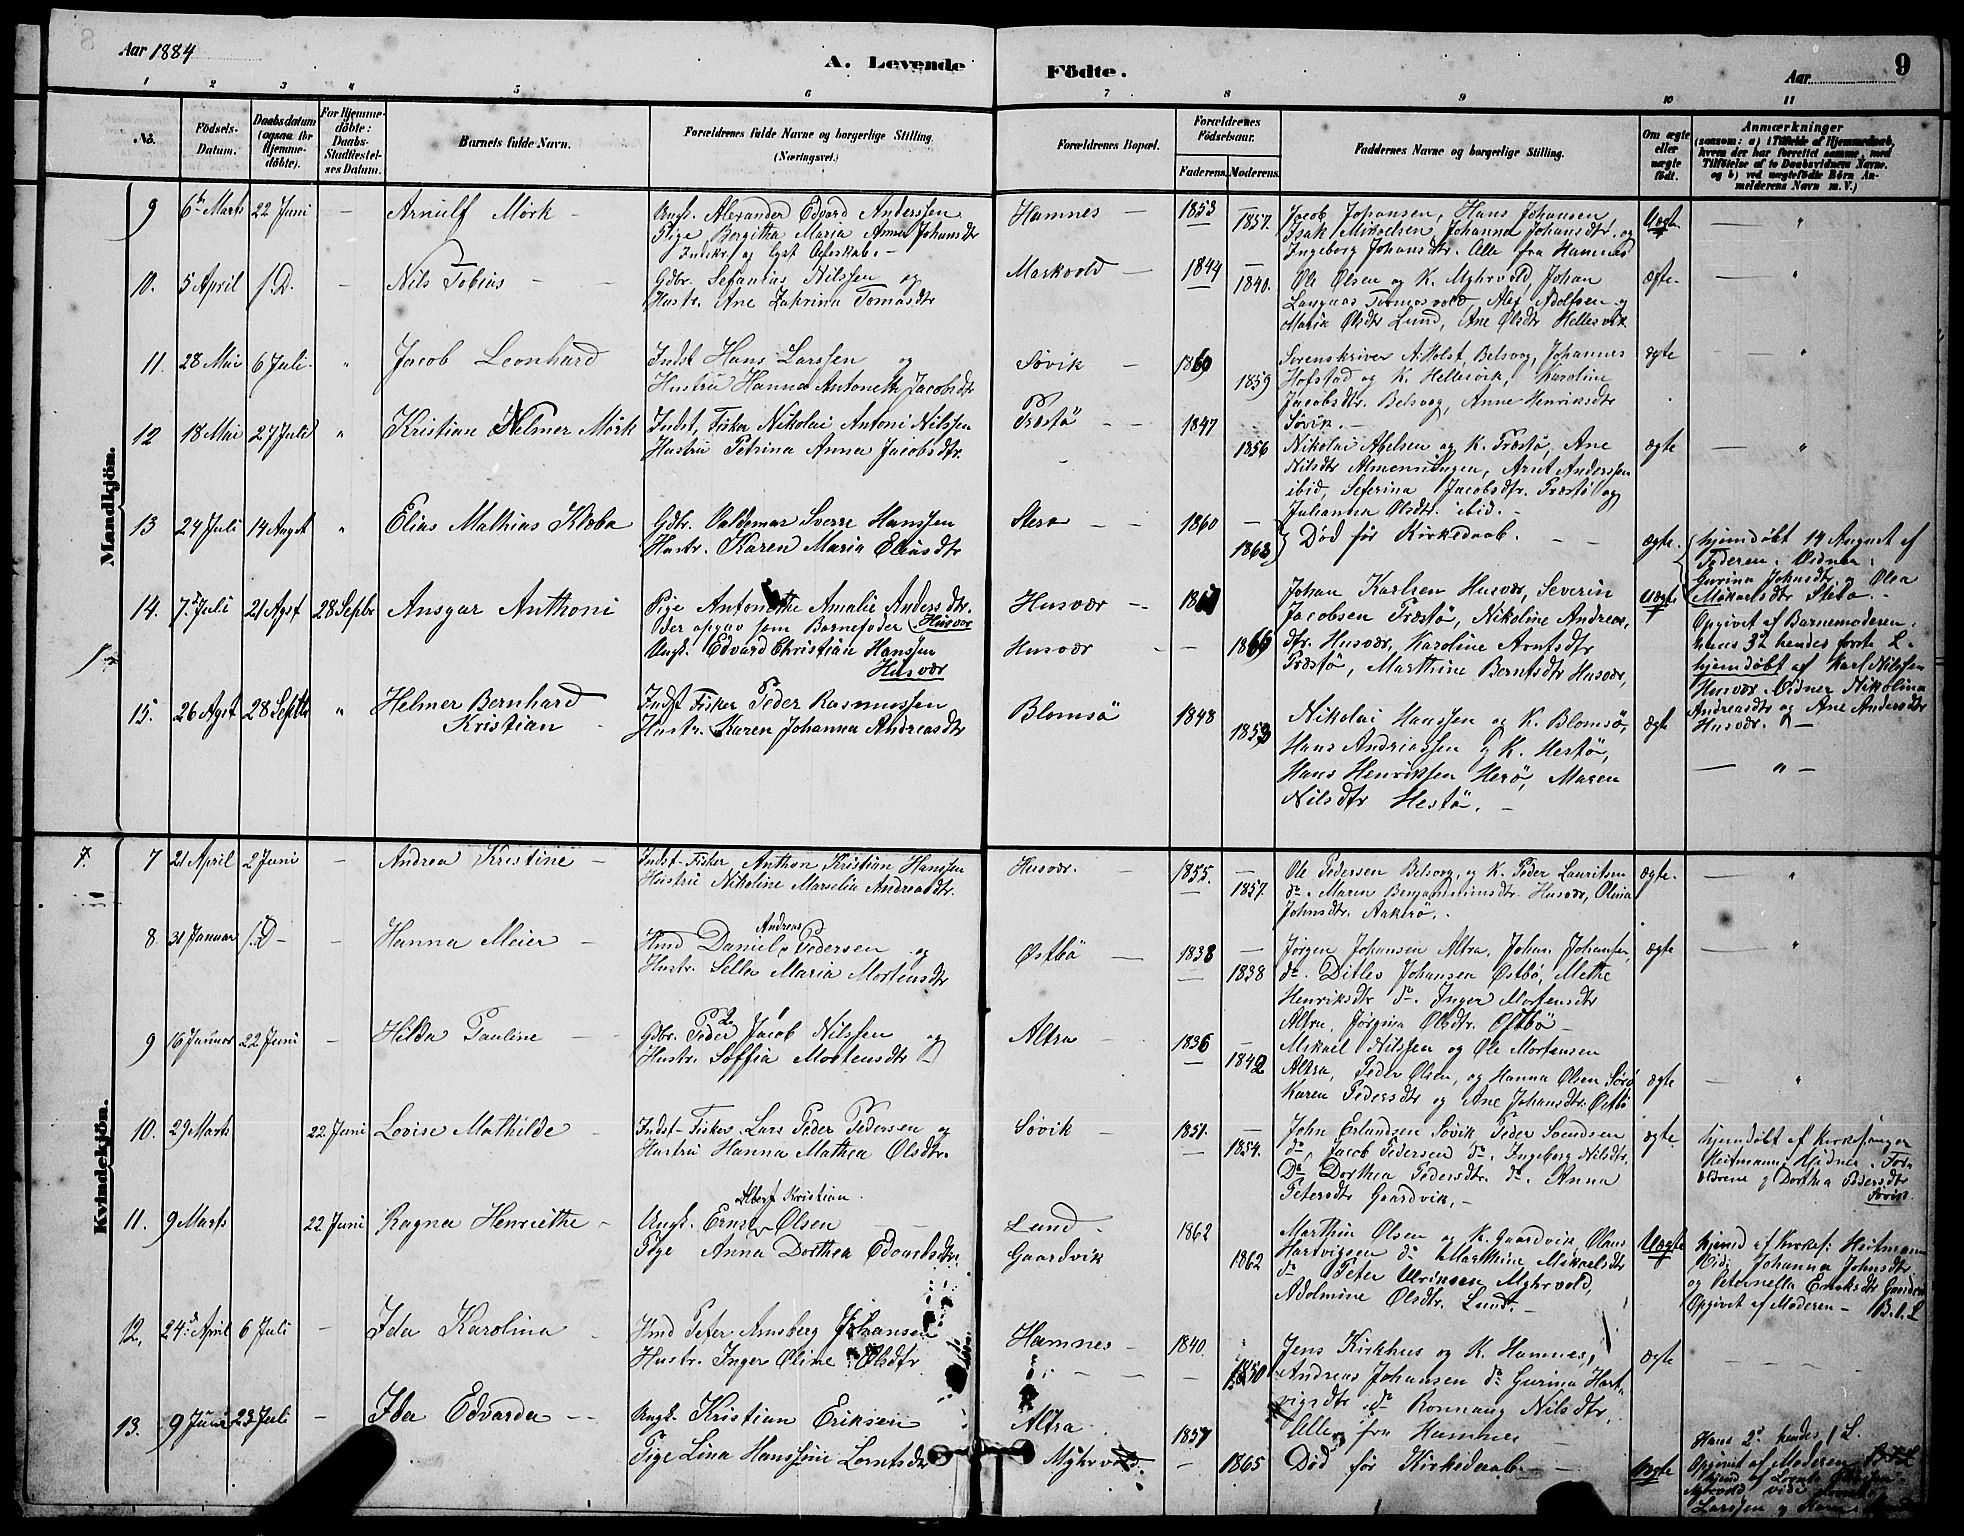 Aar 1884
A. Levende
Födte.
Aar
9
1 2 3 4 5 6 7 8 9 10 11
No.
Födsels-Datum.
Daabsdatum (ogsaa for Hjemmedöbte).
For Hjemmedöbte: Daabs-Stadfæstelses Datum.
Barnets fulde Navn.
Forældrenes fulde Navne og borgerlige Stilling. (Næringsvei.)
Forældrenes Bopæl.
Forældrenes Födselsaar.
Faderens. Moderens.
Faddernes Navne og borgerlige Stilling.
Om ægte eller uægte födt.
Anmærkninger
(saasom: a) i Tilfælde af Hjemmedaab, hvem der har forrettet samme, med Tilföielse af to Daabsvidners Navne. og b) ved uægtefödte Börn Anmelderens Navn m. V.)
Mandkjön.
9 6te Marts 22 Juni — Arnulf Mörk —
Ungk. Alexander Edvard Anderssen
Pige Bergitha Maria Anna Johansdtr
Hamnes — 1853 1857.
Jacob Johansen, Hans Johansen,
Isak Mikaelsen, Johanna Johansdtr. og
Ingeborg Johansdtr. Alle fra Hamnes
Uægte
10. 5 April 1.D. — Nils Tobias —
Gdbr. Sefanias Nilssen og
Hustr. Ane Zakrina Tomasdtr
Markvold — 1844 1840.
Ole Olsen og K. Myhrvold, Johan
Langaas Tormosvold, Alex Adolfsen og
Maria Olsdtr Lund, Ane Olsdtr Hellesvik
ægte.
11. 28 Mai 6 Juli. " Jacob Leonhard
Indst Hans Larssen og
Hustru Hanna Antonette Jacobsdtr
Søvik — 1860 1859
Sorenskriver A. Holst, Belsvog, Johannes
Hofstad og K. Hellesvik, Karoline
Jacobsdtr. Belsvog, Anne Henriksdtr
Søvik. —
ægte
12 18 Mai 27 Juli " Kristian Helmer Mörk
Indst, Fisker Nikolai Antoni Nilssen
Hustru Petrina Anna Jacobsdtr.
Præstö — 1847 1856
Nikolai Abelsen og K. Præstö, Ane
Nilsdtr Almenningen, Arnt Anderssen
ibid, Seferina Jacobsdtr. Præstö og
Julianna Olsdtr. ibid. —
ægte
13 24 Juli 14 Augst " Elias Mathias Klæbo
Gdbr. Valdemar Sverre Hanssen
Hustr. Karen Maria Eliasdtr
1860 1863
Død før Kirkedaab. —
ægte.
hjemdøbt 14 August af
Federen. Vidner:
Gurina Johnsdtr. og Olea
Mikaelsdtr
14. 7. Juli 21 Agst 28 Septbr Ansgar Anthoni
Pige Antonette Amalie Andersdtr.
Der opgav som Barnefader Husvær
Ungk. Edvard Christian Hanssen
Husvær
Husvær —
Husvær
Johan Karlsen Husvær, Severin
Jacobsen Præstö, Nikoline Andreas,
dtr. Husvær, Karoline Arntsdtr
Præstö, Marthine Berntsdtr Husvær,
Uægte
Opgivet af Barnemoderen.
hans 3de hendes første L.
hjemdøbt af Karl Nilssen
Husvær. Vidner Nikolina
Andreasdtr og Ane Andersdtr
Husvær. —
15. 26 Agst 28 Septbr " Helmer Bernhard
Kristian
Indst Fisker Peder Rasmussen
Hustr. Karen Johanna Andreasdtr
Blomsö 1848 1853
Nikolai Hanssen og K. Blomsö,
Hans Andriassen og K. Hestö,
Hans Henrikssen Herö, Maren
Nilsdtr Hestö. —
ægte
Kvindekjön.
7 21 April 2 Juni — Andrea Kristine —
Indst-Fisker Anthon Kristian Hanssen
Hustru Nikoline Marselia Andreasdtr.
Husvær. — 1855. 1857.
Ole Pedersen Belsvog, og K. Peder Lauritsen
do. Maren Benjaminsdtr. Husvær, Olina
Johnsdtr. Aakerö.
ægte.
8. 31 Januar 1.D — Hanna Meier —
Hmd Daniel Andreas Pedersen og
Hustr. Sella Maria Mortensdtr
Østbö — 1838 1838
Jørgen Johansen Altra, Johan Johansen,
do. Ditlev Johansen Østbö, Methe
Henriksdtr do. Inger Mortensdtr
Altra, Jørgina Olsdtr. Østbö —
ægte
9 16 Januar 22 Juni — Hilda Pauline —
Gdbr. Peder Jacob Nilssen og
Hustr. Soffia Mortensdtr
Altra — 1836 1842
Mikael Nilssen og Ole Mortensen
Altra, Peder Olsen, og Hanna Olsen Sørö
Karen Pedersdtr og Ane Johansdtr. Östbö
ægte
10. 29 Marts 22 Juni Lovise Mathilde —
Indst-Fisker Lars Peder Pedersen og
Hustru Hanna Mathea Olsdtr.
Søvik — 1851. 1854.
John Erlandsen Søvik, Peder Svendsen
do, Jacob Pedersen do. Ingeborg Nilsdtr,
Do Dorthea Pedersdtr. do. Anna
Petersdtr Gaardvik. —
ægte
hjemdøbt af Kirkesanger
Heitmann. Vidner
og Dorthea Pedersdtr
Søvik
11. 9 Marts 22 Juni Ragna Henriethe —
Albert Kristian.
Ungk. Ernst Olsen
Pige Anna Dorthea Edvardsdtr.
Lund —
Gaardvik
1862 1862
Marthin Olsen og K. Gaardvik, Olaus
Hartvigsen do. Marthine Mikaelsdtr
do. Peter Ulriksen Myhrvold,
Adolmine Olsdtr. Lund. —
Uægte
hjemd. af Kirkes: Heitmann
Vid: Johanna Johnsdtr
og Petornella Eriksdtr
Opgivet af Moderen — B. 1. L
12. 24. April 6 Juli — Ida Karolina —
Hmd Peter Amsberg Johansen
Hustr. Inger Oline Olsdtr
Hamnes — 1840. 1850
Jens Kirkhus og K. Hamnes,
Andreas Johansen do. Gurina Hartvigsdtr
do. Ronnaug Nilsdtr.
Alle fra Hamnes —
ægte
13. 9 Juni 23 Juli — Ida Edvarda —
Ungk. Kristian Eriksen
Pige Lina Hanssine Lorntsdtr
Altra.
Myhrvold.
1857 1865
Død før Kirkedaab. —
Uægte
Hans 2d hendes 1 L.
Opgivet af Moderen